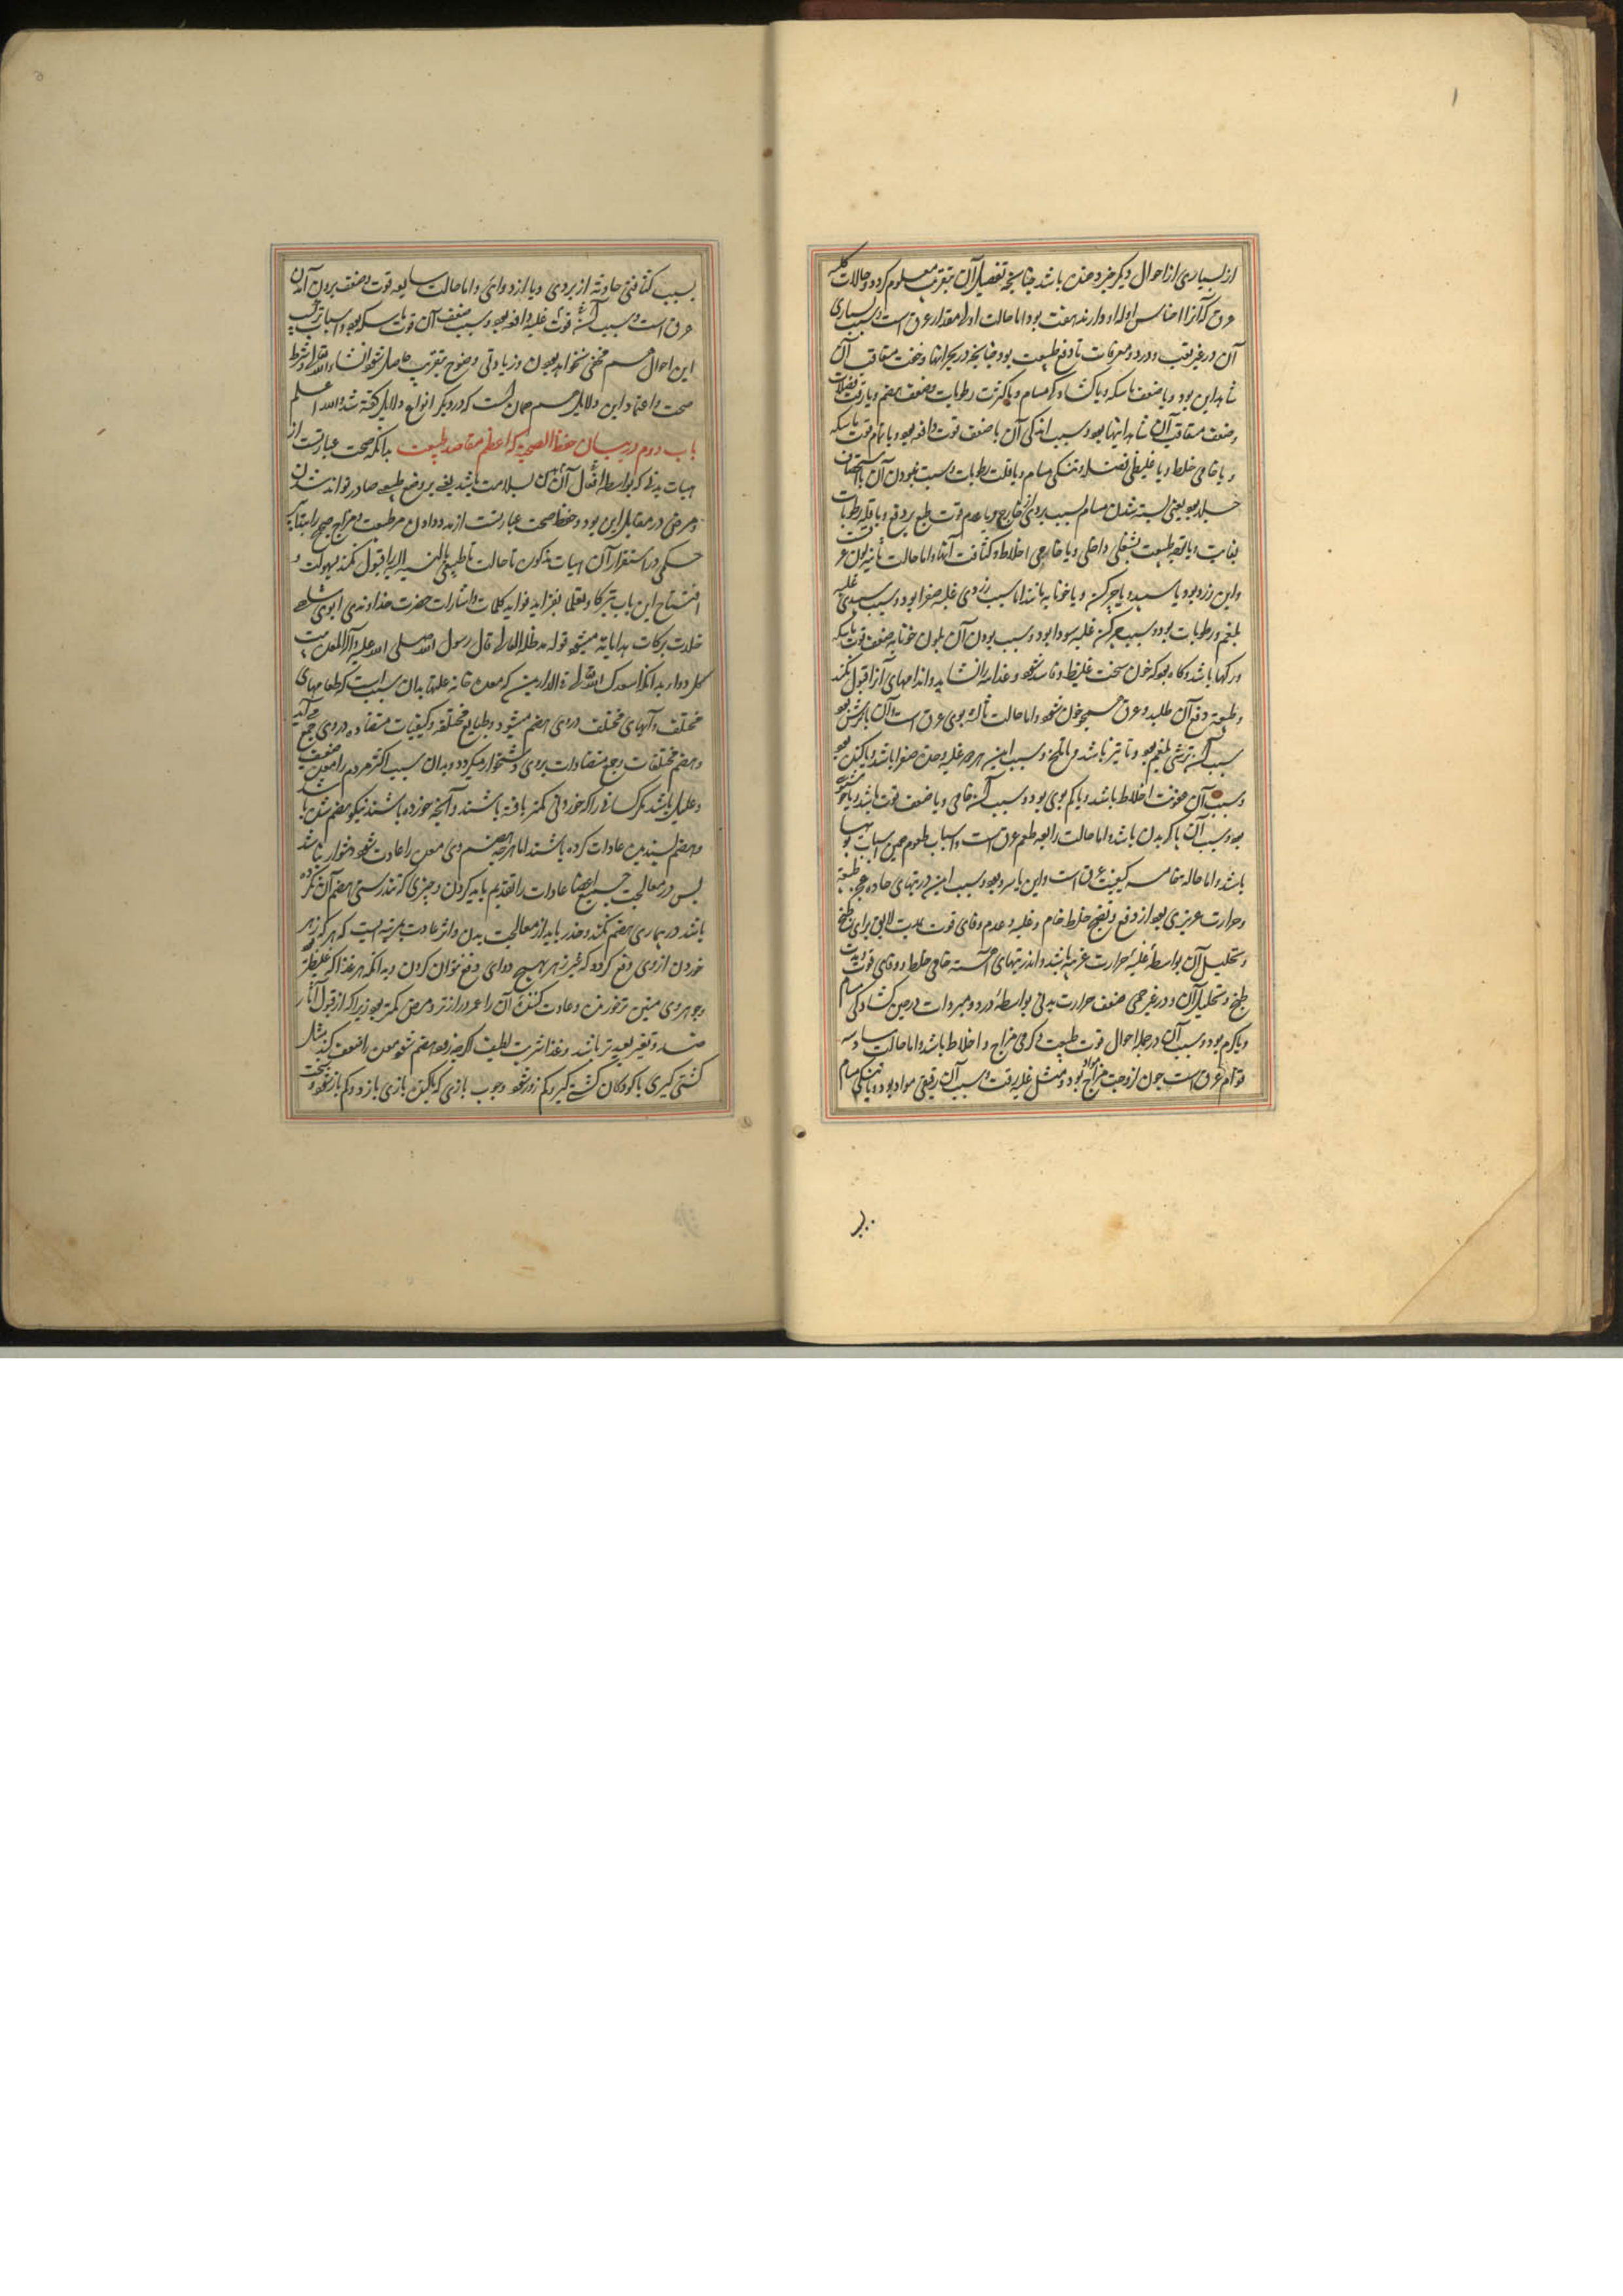 از بسیاری از احوال دیکر خبر دهنده باشد چنانچه تفصیل آن بتقریب معلوم کردد و حالات کلیه
عرق که آنرا اجناس اوله او دارند هفت بود اما حالت اولی مقدار عرق است و سبب بسیاری
آن در غیر تعب و درد و معرقات یا دفع طبیعت بود چنانچه در بحرانها و خفت متعاقب آن
شاهد این بود و یا ضعف ماسکه و یا کشادکی مسام و یا کثرت رطوبات و ضعف هضم و یا رقت فضلات
و ضعف متعاقب آن شاهد اینها بود و سبب اندکی آن یا ضعف قوت دافعه بود و یا تمام قوت ماسکه
و یا خامی خلط و یا غلیظی فضله و تنکی مسام و یا قلت رطوبات و سبب نبودن آن یا استحصاف
جلد بود یعنی بسته شدن مسام بسبب بردی از خارج و یا عدم قوت طبع بر دفع و یا قلة رطوبات
بغایت و یا توجه طبیعت بشغلی داخلی و یا خارجی اخلاط و کثافت آنها و اما حالت ثانیه لون عرق
و این زرد بود یا سپید و یا چرکن و یا خونابه مانند اما سبب زردی غلبه صفرا بود و سبب سپیدی غلبه
بلغم و رطوبات بود و سبب چرکن غلبه سودا بود و سبب بودن آن بلون خونابه ضعف قوت ماسکه
در رکها باشد و کاه بود که خون سخت غلیظ و فاسد شود و غذا را نشاید و اندامهای آنرا قبول نکند
و طبیعة دفع آن طلبد و عرق همچو خون شود و اما حالت ثالثه بوی عرق است و آن یا ترش بود
سبب آن ترشی بلغم بود و یا تیز باشد و یا تلخ و سبب این هر دو غلبه و حدت صفرا باشد و یا کنده بود
و سبب آن عفونت اخلاط باشد و یا کم بوی بود و سبب آن خامی و یا ضعف قوت باشد و یا خوش
بود و سبب آن پاکی بدن باشد و اما حالت رابعه طعم عرق است و اسباب طعوم همین اسباب بویها
باشد و اما حاله خامسه کیفیت عرق است و این یا سرد بود و سبب این در تبهای حاده عجز طبیعة
و حرارت عزیزی بود از دفع و نضج خلط خام و غلبه و عدم وفای قوت بمدت لایق برای طبخ
و تحلیل آن بواسطۀ غلبۀ حرارت غریبه باشد و اندر تبهای آهسته خامی خلط و وفای قوت و مدت
طبخ و تحلیل آن و در غیر حمی ضعف حرارت بدنی بواسطۀ درد و مبردات در حین کشادکی مسام
و یا کرم بود و سبب آن در جمله احوال قوت طبیعت و کرمی مزاج و اخلاط باشد و اما حالت سادسه
قوام عرق است چون لزوجت مزاج بود و مثل غلبه رقت و سبب آن رقیقی مواد بود و یا تنکی مسام
بسبب کثافتی حادثه از بردی و یا از دوای و اما حالت سابعه قوت و ضعف برون آمدن
عرق است و سبب آن قوت غلبه دافعه بود و سبب ضعف آن قوت ماسکه بود و اسباب ترکب
این احوال هم مخفی نخواهد بودن و زیادتی وضوح بتقریب حاصل شود انشاءالله تعالی و شرط
صحت و اعتماد این دلایل هم همان است که در دیکر انواع دلایل کفته شد والله اعلم
باب دوم در بیان حفظ الصحه که اعظم مقاصد طبیعت بدانکه صحت عبارتست از
هیات بدنی که بواسطه افعال آن بدن بسلامت باشد یعنی بر وضع طبیعی صادر تواند شدن
و مرض در مقابل این بود و حفظ صحت عبارتست از مدد دادن مر طبیعت و مزاج صحیح را بتدابیر
حکمی در استقرار آن هیات مذکوره تا حالت ناطبیعی بالنسبه الیه را قبول نکند بسهولت و
افتتاح این باب تبرکا و تعلما بفراید فواید کلمات و اشارات حضرت خداوندی ابوی سلطه
خلدت برکات هدایاته میشود قوله مد ظلاله العالی قال رسول الله صلی الله علیه و آله المعده بیت
کل دوا بدانکه اسعدک الله تعالی فی الدارین که معده خانه علتها بدان سبب است که طعامهای
مختلف و آبهای مختلف در وی هضم میشود و بطبایع مختلفه و کیفیات متضاده در وی جمع می آید
و هضم مختلفات و جمع متضادات بر وی دشخوار میکردد و بدان سبب اکثر مردم را معده ضعیف
و علیل باشد مکر کسانی را که خوردنی کمتر یافته باشند و آنچه خورده باشند نیکو هضم شده باشد
و هضم پسندیده عادات کرده باشند اما هر چه هضم وی معده را عادت شود دشوار نباشد
پس در معالجت جمیع اعضا عادات را تقدیم باید کردن و چیزی که تندرستی هضم آن نکرده
باشد در بیماری هضم نکند و حذر باید از معالجت بدل و اثر عادت بمرتبه ایست که هر که زهر
خوردن از وی دفع کردد که غیر زهر بهیچ دوای دفع نتوان کردن و بدانکه هر غذا که غلیظتر
و جوهر وی متین تر خورنده و عادت کننده آن را عمر درازتر و مرض کمتر بود زیرا که از قبول آثار
ضد و تغیر بعیدتر باشد و غذا شربت لطیف اکر چه زود هضم شود معده را ضعیف کند مثل
کشتی کیری با کودکان کشتی کیرد کم زور شود و چوب بازی که با کمتر بازی بازد و کم باز شود و